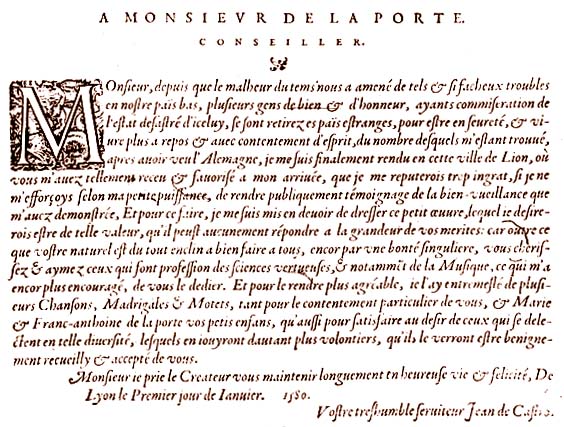 A MONSIEVR DE LA PORTE.
CONSEILLER.
MOnsieur, depuis que le malheur du tems nous a amené de tels & si facheux troubles
en nostre païs bas, plusieurs gens de bien & d'honneur, ayants commiseration de
l'estat desastré d'iceluy, se sont retirez es païs estranges, pour estre en seureté, & vi-
ure plus a repos & auec contentement d'esprit, du nombre desquels m'estant trouué,
apres auoir veu l'Alemagne, je me suis finalement rendu en cette ville de Lion, où
vous m'auez tellement receu & fauorisé a mon arriuée, que je me reputerois trop ingrat, si je ne
m'efforçoys selon ma petite puissance, de rendre publiquement témoignage de la bien-vueillance que
m'auez demonstrée, Et pour ce faire, je me suis mis en deuoir de dresser ce petit œuure, lequel je desire-
rois estre de telle valeur, qu'il peust aucunement répondre a la grandeur de vos merites: car outre ce
que vostre naturel est du tout enclin a bien faire a tous, encor par vne bonté singuliere, vous cheris-
sez & aymez ceux qui font profession des sciences vertueuses, & notammēt de la Musique, ce qui m'a
encor plus encouragé, de vous le dedier. Et pour le rendre plus agréable, ie l'ay entremeslé de plusi-
eurs Chansons, Madrigales & Motets, tant pour le contentement particulier de vous, & Marie
& Franc-anthoine de la porte vos petis enfans, qu'aussi pour satisfaire au desir de ceux qui se dele-
ctent en telle diuersité, lesquels en iouyront dautant plus volontiers, qu'ils le verront estre benigne-
ment recueilly & accepté de vous.
Monsieur ie prie le Createur vous maintenir longuement en heureuse vie & felicité, De
Lyon le Premier jour de Ianuier. 1580.
Vostre treshumble seruiteur Jean de Castro.